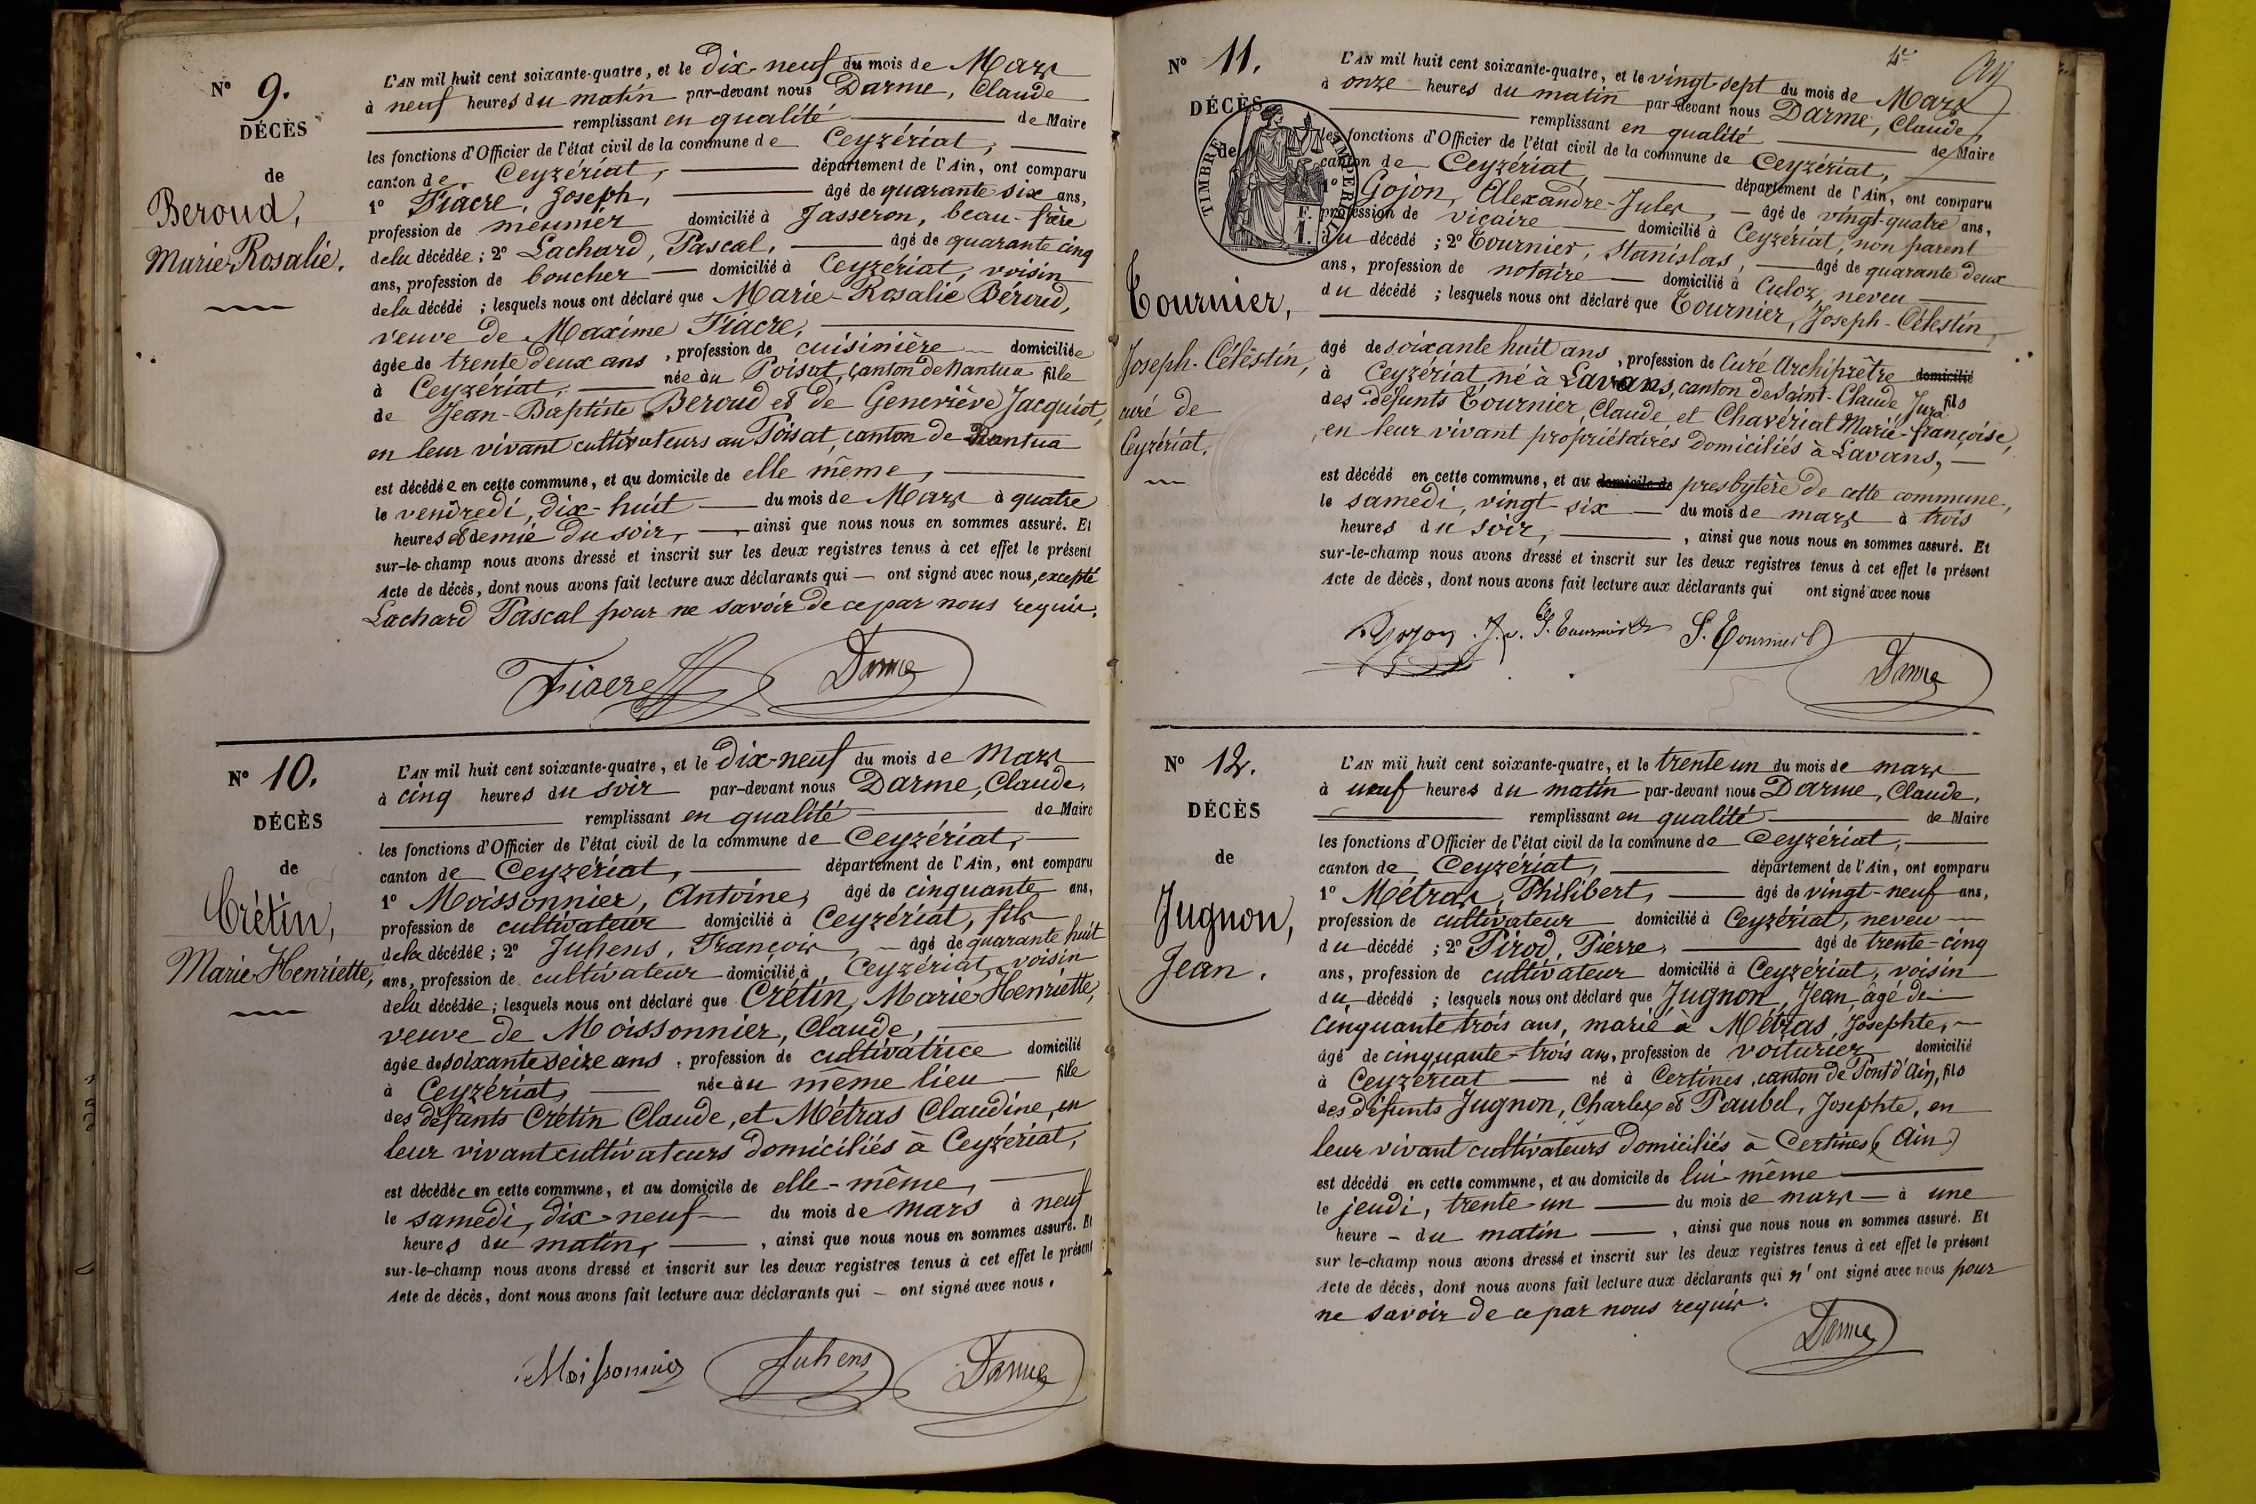 N° 9.
DÉCÈS
de
Beroud,
Marie-Rosalie.
L'AN mil huit cent soixante-quatre, et le dix-neuf du mois de Mars
à neuf heures du matin par-devant nous Darme, Claude
remplissant en qualité de Maire
les fonctions d'Officier de l'état civil de la commune de Ceyzériat,
canton de Ceyzériat, département de l'Ain, ont comparu
1° Fiacre, Joseph, âgé de quarante six ans,
profession de meunier domicilié à Jasseron, beau-frère
de la décédée ; 2° Lachard, Pascal, âgé de quarante cinq
ans, profession de boucher domicilié à Ceyzériat, voisin
de la décédé ; lesquels nous ont déclaré que Marie-Rosalie Béroud,
veuve de Maxime Fiacre,
âgée de trente deux ans, profession de cuisinière domiciliée
à Ceyzériat, née au Poisat, canton de Nantua fille
de Jean-Baptiste Beroud et de Geneviève Jacquiot,
en leur vivant cultivateurs au Poisat, canton de Nantua
est décédée en cette commune, et au domicile de elle même,
le vendredi, dix-huit du mois de Mars à quatre
heures et demie du soir, ainsi que nous nous en sommes assuré. Et
sur-le-champ nous avons dressé et inscrit sur les deux registres tenus à cet effet le présent
Acte de décès, dont nous avons fait lecture aux déclarants qui — ont signé avec nous, excepté
Lachard Pascal pour ne savoir de ce par nous requis.
Fiacre Darme
N° 10.
DÉCÈS
de
Crétin,
Marie-Henriette,
L'AN mil huit cent soixante-quatre, et le dix-neuf du mois de Mars
à cinq heures du soir par-devant nous Darme, Claude,
remplissant en qualité de Maire
les fonctions d'Officier de l'état civil de la commune de Ceyzériat,
canton de Ceyzériat, département de l'Ain, ont comparu
1° Moissonnier, Antoine, âgé de cinquante ans,
profession de cultivateur domicilié à Ceyzériat, fils
de la décédée ; 2° Juhens, François, — âgé de quarante huit
ans, profession de cultivateur domicilié à Ceyzériat, voisin
de la décédée ; lesquels nous ont déclaré que Crétin, Marie-Henriette,
veuve de Moissonnier, Claude,
âgée de soixante seize ans, profession de cultivatrice domicilié
à Ceyzériat, née au même lieu fille
des défunts Crétin Claude, et Métras Claudine, en
leur vivant cultivateurs domiciliés à Ceyzériat,
est décédée en cette commune, et au domicile de elle-même,
le samedi, dix-neuf du mois de mars à neuf
heures du matin, ainsi que nous nous en sommes assuré. Et
sur-le-champ nous avons dressé et inscrit sur les deux registres tenus à cet effet le présent
Acte de décès, dont nous avons fait lecture aux déclarants qui — ont signé avec nous.
Moissonnier Juhens Darme
N° 11.
DÉCÈS
de
TIMBRE IMPERIAL
1 F.
Tournier,
Joseph-Célestin,
curé de
Ceyzériat.
L'AN mil huit cent soixante-quatre, et le vingt-sept du mois de Mars
à onze heures du matin par-devant nous Darme, Claude,
remplissant en qualité de Maire
les fonctions d'Officier de l'état civil de la commune de Ceyzériat,
canton de Ceyzériat, département de l'Ain, ont comparu
1° Gojon, Alexandre-Jules, — âgé de vingt-quatre ans,
profession de vicaire domicilié à Ceyzériat, non parent
du décédé ; 2° Tournier, Stanislas, âgé de quarante deux
ans, profession de notaire domicilié à Culoz, neveu
du décédé ; lesquels nous ont déclaré que Tournier, Joseph-Célestin,
âgé de soixante huit ans, profession de Curé Archiprêtre domicilié
à Ceyzériat, né à Lavans, canton de Saint-Claude, Jura fils
des défunts Tournier, Claude, et Chavériat Marie-françoise,
en leur vivant propriétaires domiciliés à Lavans,
est décédé en cette commune, et au domicile de presbytère de cette commune,
le samedi, vingt-six du mois de mars à trois
heures du soir, ainsi que nous nous en sommes assuré. Et
sur-le-champ nous avons dressé et inscrit sur les deux registres tenus à cet effet le présent
Acte de décès, dont nous avons fait lecture aux déclarants qui ont signé avec nous
Gojon S. Tournier Darme
N° 12.
DÉCÈS
de
Jugnon,
Jean.
L'AN mil huit cent soixante-quatre, et le trente un du mois de mars
à neuf heures du matin par-devant nous Darme, Claude,
remplissant en qualité de Maire
les fonctions d'Officier de l'état civil de la commune de Ceyzériat,
canton de Ceyzériat, département de l'Ain, ont comparu
1° Métras, Philibert, âgé de vingt-neuf ans,
profession de cultivateur domicilié à Ceyzériat, neveu
du décédé ; 2° Pirod, Pierre, âgé de trente-cinq
ans, profession de cultivateur domicilié à Ceyzériat, voisin
du décédé ; lesquels nous ont déclaré que Jugnon, Jean, âgé de
cinquante trois ans, marié à Métras, Josephte,
âgé de cinquante-trois ans, profession de voiturier domicilié
à Ceyzériat né à Certines, canton de Pont d'Ain, fils
des défunts Jugnon, Charles et Paubel, Josephte, en
leur vivant cultivateurs domiciliés à Certines (Ain)
est décédé en cette commune, et au domicile de lui même
le jeudi, trente-un du mois de mars à une
heure du matin, ainsi que nous nous en sommes assuré. Et
sur le-champ nous avons dressé et inscrit sur les deux registres tenus à cet effet le présent
Acte de décès, dont nous avons fait lecture aux déclarants qui n'ont signé avec nous pour
ne savoir de ce par nous requis.
Darme